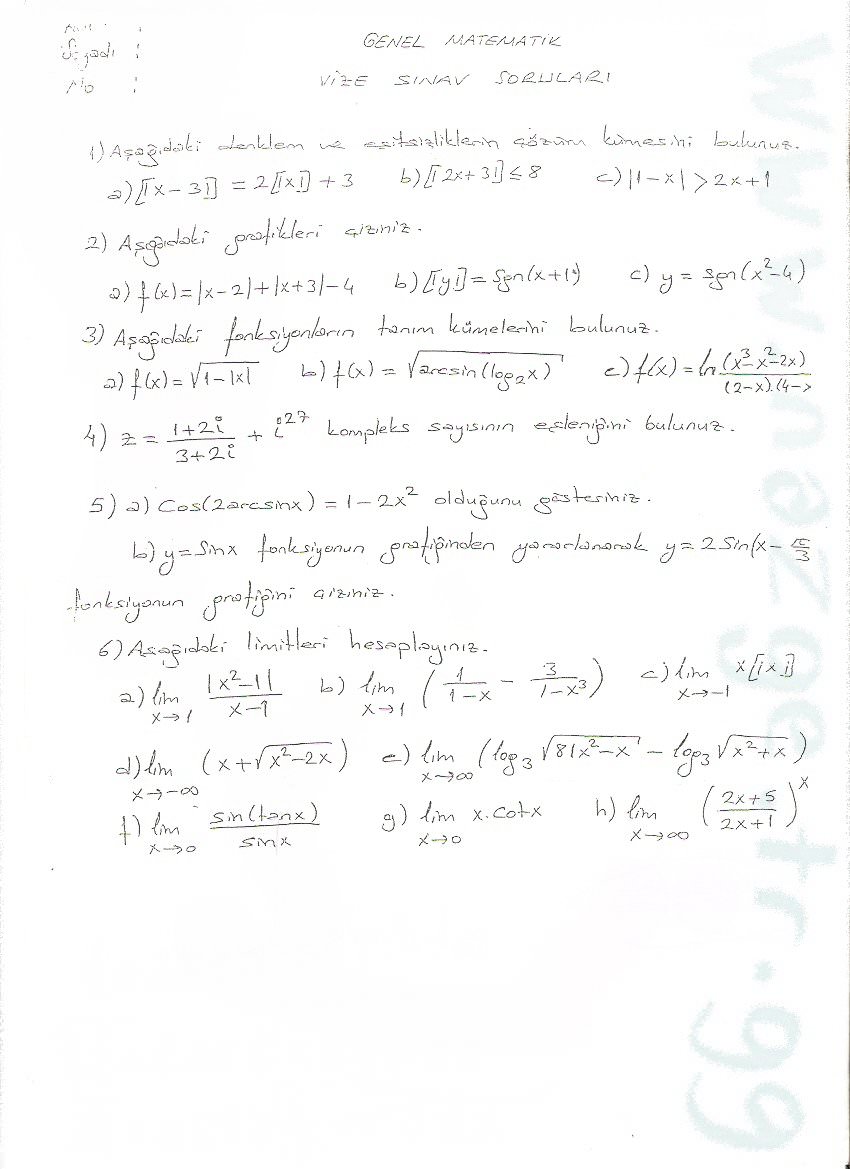 Soyadı :
No :
GENEL MATEMATİK
VİZE SINAV SORULARI
1) Aşağıdaki denklem ve eşitsizliklerin çözüm kümesini bulunuz.
a) [|x-3|] = 2[|x|] + 3 b) [|2x+3|] ≤ 8 c) |1-x| > 2x+1
2) Aşağıdaki grafikleri çiziniz.
a) f(x) = |x-2| + |x+3| - 4 b) [|y|] = sgn(x+1) c) y = sgn(x²-4)
3) Aşağıdaki fonksiyonların tanım kümelerini bulunuz.
a) f(x) = √(1-|x|) b) f(x) = √(arcsin(log₂x)) c) f(x) = ln (x³-x²-2x)/(2-x).(4-
4) z = (1+2i)/(3+2i) + i²⁷ kompleks sayısının eşleniğini bulunuz.
5) a) Cos(2arcsinx) = 1-2x² olduğunu gösteriniz.
b) y = Sinx fonksiyonun grafiğinden yararlanarak y = 2Sin(x-π/3
fonksiyonun grafiğini çiziniz.
6) Aşağıdaki limitleri hesaplayınız.
a) lim x→1 |x²-1|/(x-1) b) lim x→1 (1/(1-x) - 3/(1-x³)) c) lim x→-1 x[|x|]
d) lim x→-∞ (x+√(x²-2x)) e) lim x→∞ (log₃√(81x²-x) - log₃√(x²+x))
f) lim x→0 sin(tanx)/sinx g) lim x→0 x.cotx h) lim x→∞ ((2x+5)/(2x+1))^x